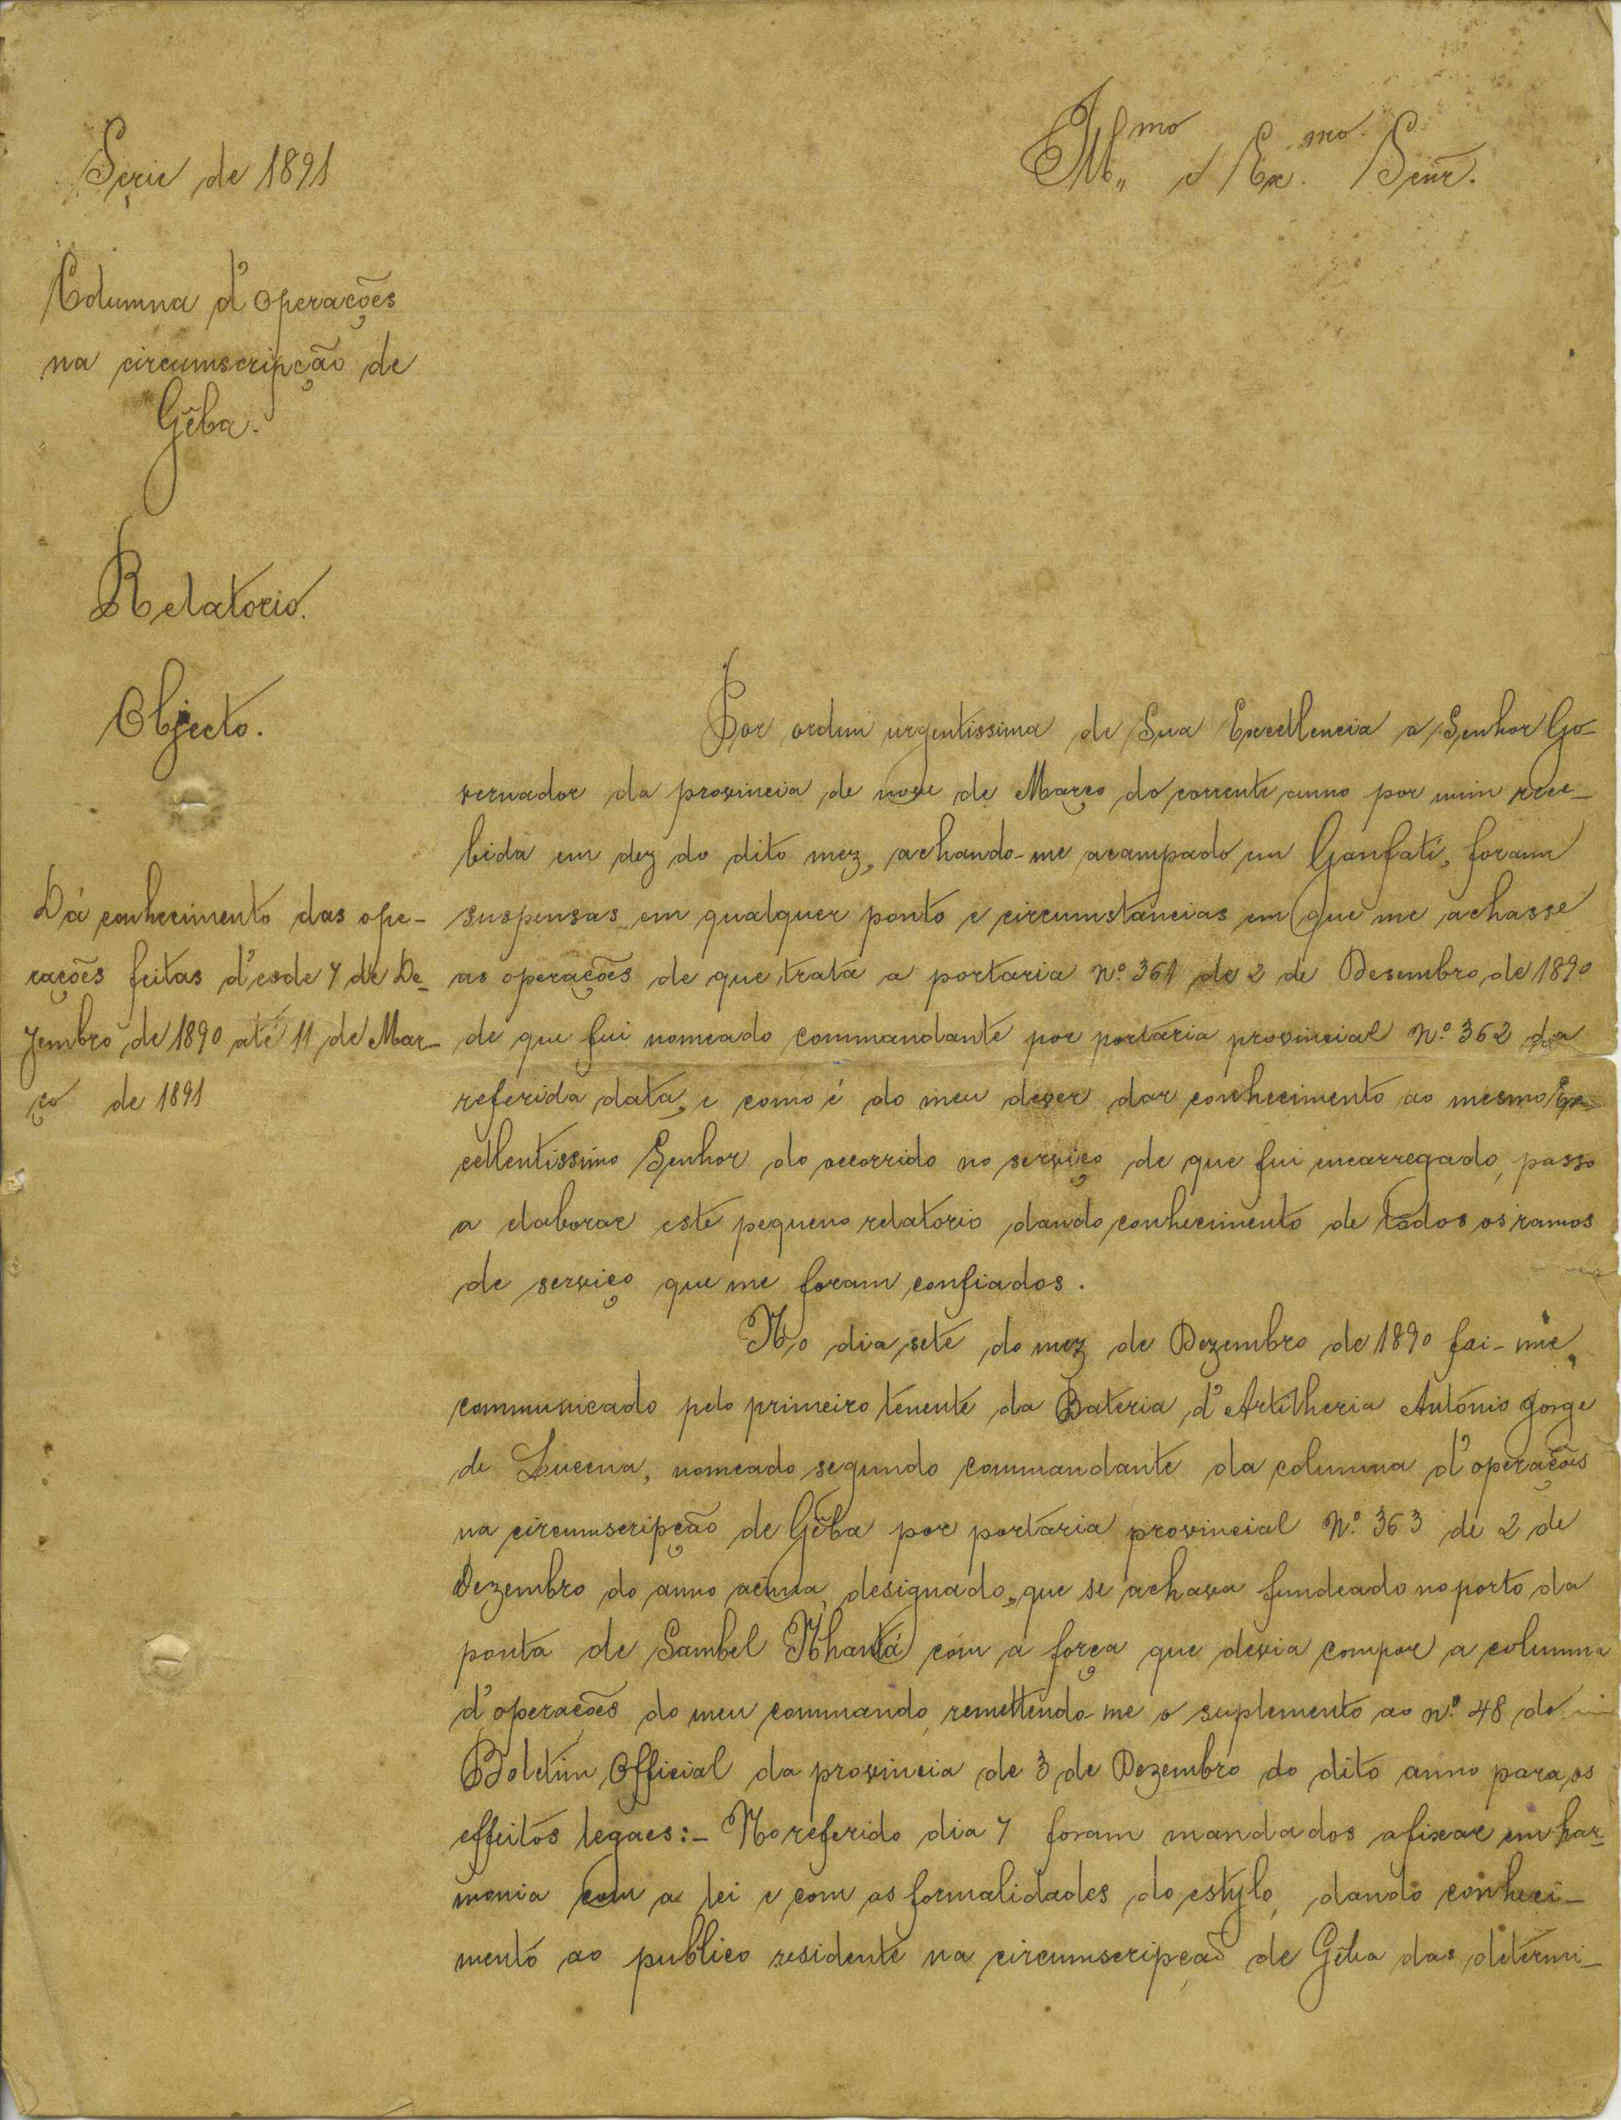 Serie de 1891
Ill.mo e Ex.mo Senr.
Columna d'operações
na circumscripção de
Gêba.
Relatorio.
Objecto.
Dá conhecimento das ope-
rações feitas d'esde 7 de De-
zembro de 1890 até 11 de Mar-
ço de 1891
Por ordem urgentissima de Sua Excellencia o Senhor Go-
vernador da provincia de nove de Março do corrente anno por mim rece-
bida em dez do dito mez, achando-me acampado em Ganfati, foram
suspensas em qualquer ponto e circumstancias em que me achasse
as operações de que trata a portaria Nº 361 de 2 de Desembro de 1890
de que fui nomeado commandante por portaria provincial Nº 362 da
referida data, e como é do meu dever dar conhecimento ao mesmo Ex-
cellentissimo Senhor do occorrido no serviço de que fui encarregado, passo
a elaborar este pequeno relatorio dando conhecimento de todos os ramos
de serviço que me foram confiados.
No dia sete do mez de Dezembro de 1890 foi-me
communicado pelo primeiro tenente da Bateria d'Artilheria António Jorge
de Lucena, nomeado segundo commandante da columna d'operações
na circumscripção de Gêba por portaria provincial Nº 363 de 2 de
Dezembro do anno acima designado, que se achava fundeado no porto da
ponta de Sambel Nhantá com a força que devia compor a columna
d'operações do meu commando remettendo-me o suplemento ao nº 48 do
Boletim Official da provincia de 3 de Dezembro do dito anno para os
effeitos legaes:- No referido dia 7 foram mandados afixar em har-
monia com a lei e com as formalidades do estylo, dando conheci-
mento ao publico residente na circumscripção de Gêba das determi-